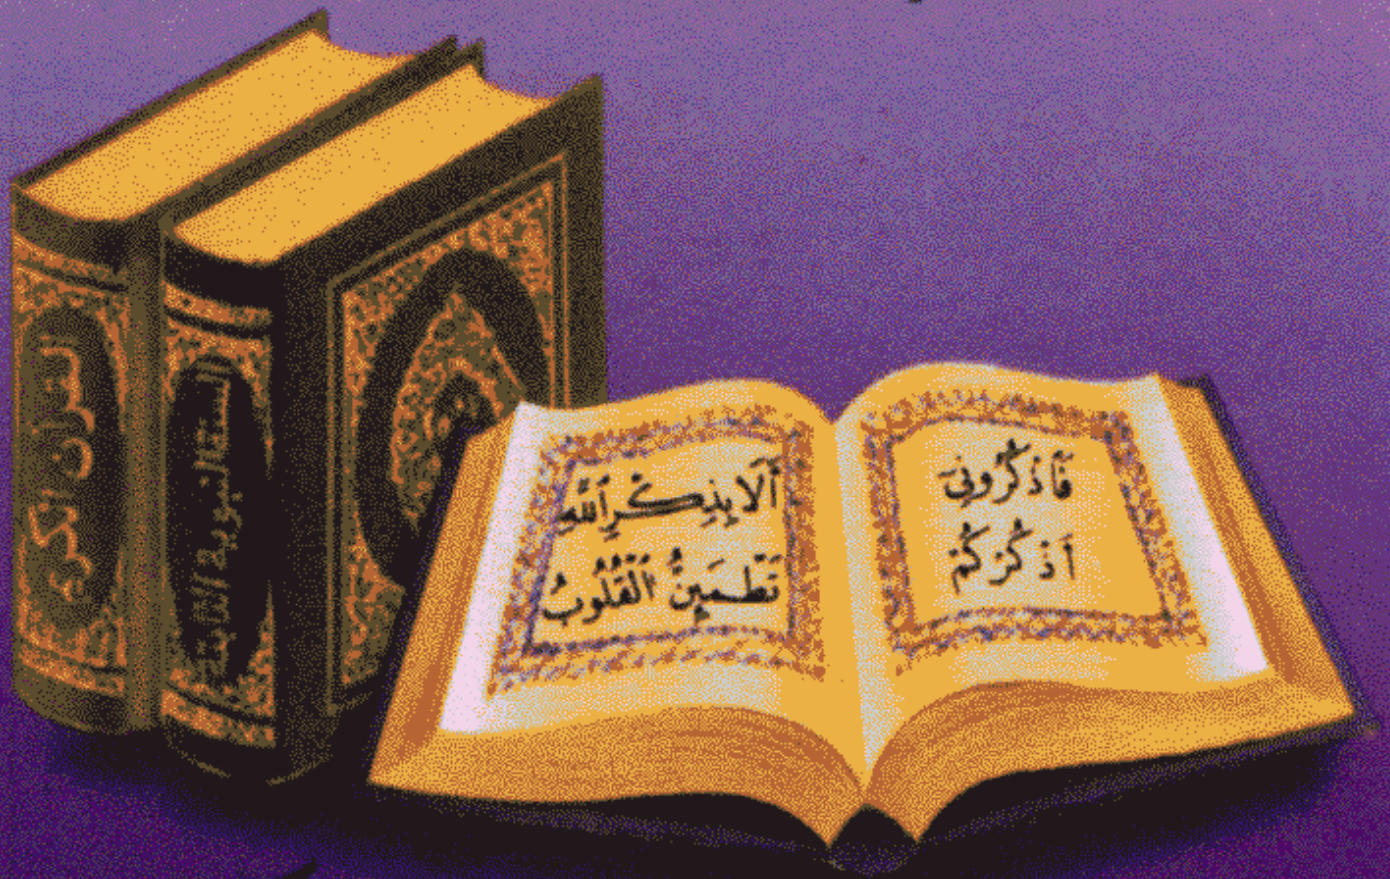 القرآن الكريم
السنة النبوية الثابتة
فَٱذْكُرُونِىٓ
أَذْكُرْكُمْ
أَلَا بِذِكْرِ ٱللَّهِ
تَطْمَئِنُّ ٱلْقُلُوبُ